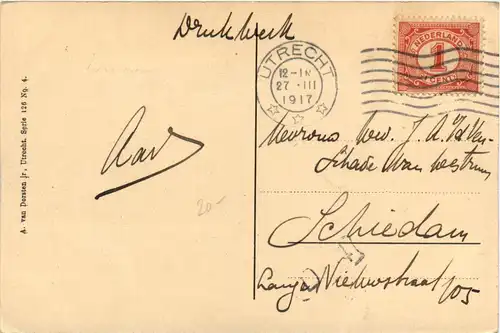 Drukwerk
NEDERLAND
1
CENT
UTRECHT
12-1N
27 III
1917
Mevrouw
Schade van Westrum
Schiedam
Lange Nieuwstraat 105
20-
A. van Dorsten jr., Utrecht. Serie 126 No. 4.